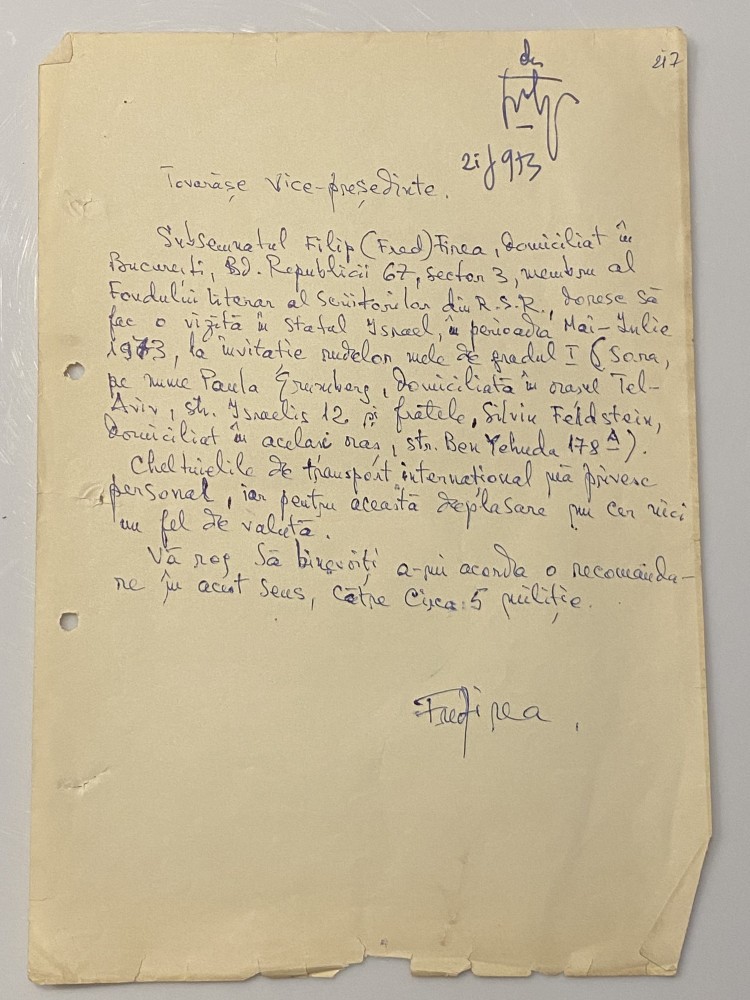 217
da
2i/973
Tovarășe Vice-președinte.
Subsemnatul Filip (Fred) Firea, domiciliat în
București, Bd. Republicii 67, sector 3, membru al
Fondului literar al Scriitorilor din R.S.R., doresc să
fac o vizită în statul Israel, în perioada Mai-Iulie
1973, la invitație rudelor mele de gradul I (Sora,
pe nume Paula Grumberg, domiciliată în orașul Tel-
Aviv, str. Israelis 12 și fratele, Silviu Feldstein,
domiciliat în același oraș, str. Ben Yehuda 178 A).
Cheltuielile de transport internațional mă privesc
personal, iar pentru această deplasare nu cer nici
un fel de valută.
Vă rog să binevoiți a-mi acorda o recomanda-
re în acest sens, către Circa 5 miliție.
Fred Firea